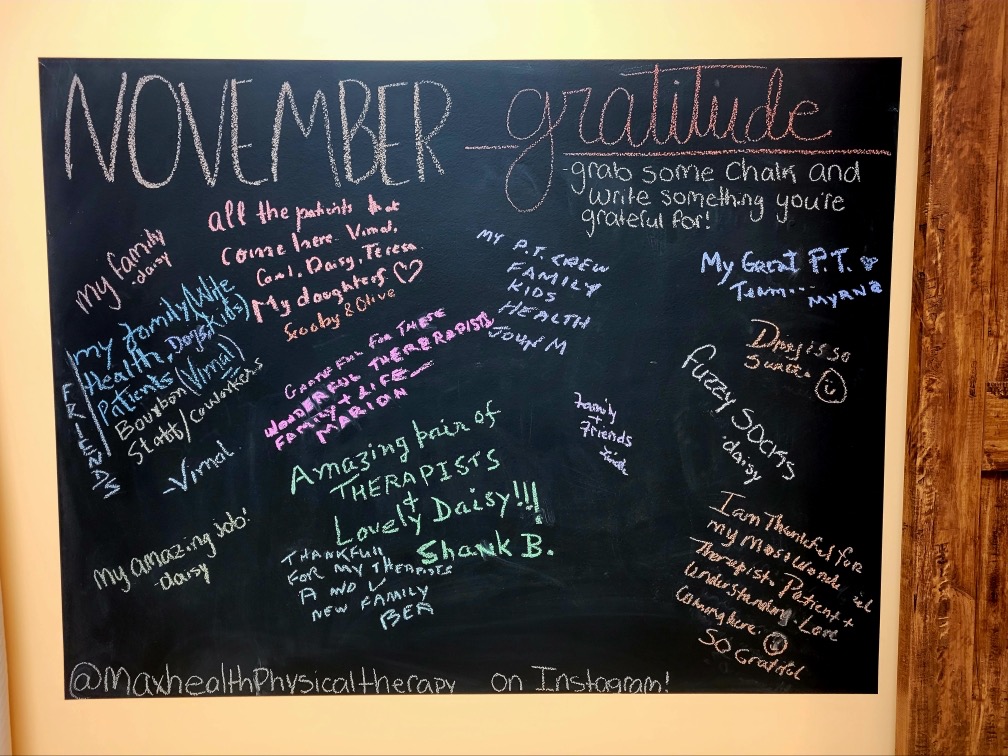 NOVEMBER gratitude
-grab some chalk and
write something you're
grateful for!
my family
-daisy
all the patients that
come here. Vimal,
Carol, Daisy, Teresa
My daughters ♡
Scooby & Olive
my family (Wife
Health, Dogs, Kids)
Patients (Vimal)
Bourbon
Staff/coworkers
FRIENDS
-Vimal
GRATEFUL FOR THESE
WONDERFUL THERERAPISTS
FAMILY + LIFE
MARION
MY P.T. CREW
FAMILY
KIDS
HEALTH
JOHN M
My Great P.T. ♡
Team... MYRNA
Daisy is so
Sweet.
fuzzy socks
-daisy
Family
+
Friends
Amazing pair of
THERAPISTS
+
Lovely Daisy!!!
Shank B.
my amazing job!
-daisy
THANKFULL
FOR MY THERAPISTS
AND
NEW FAMILY
BEA
I am Thankful for
my Most Wonderful
Therapist. Patient +
Understanding. Love
Coming here.
SO Grateful
@Maxhealthphysicaltherapy on Instagram!